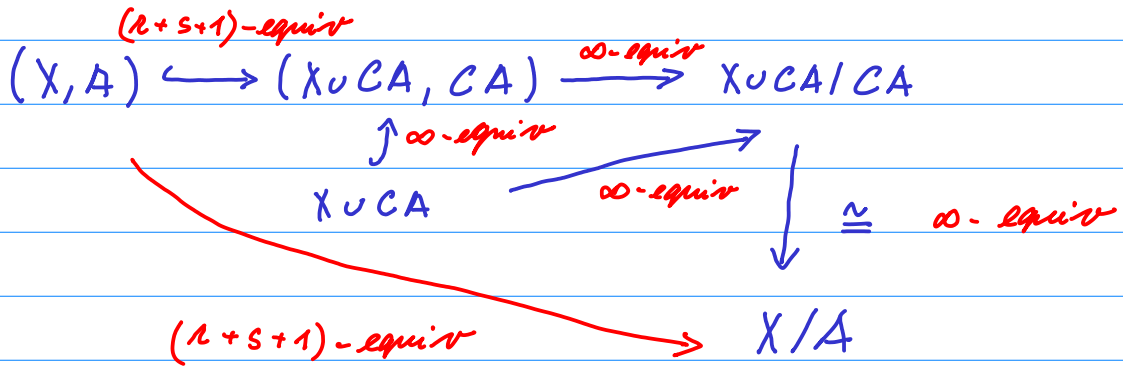 (r+s+1)-equiv
∞-equiv
(X,A) ↪ (X∪CA, CA) → X∪CA/CA
∞-equiv
X∪CA
∞-equiv
≅ ∞-equiv
(r+s+1)-equiv
X/A